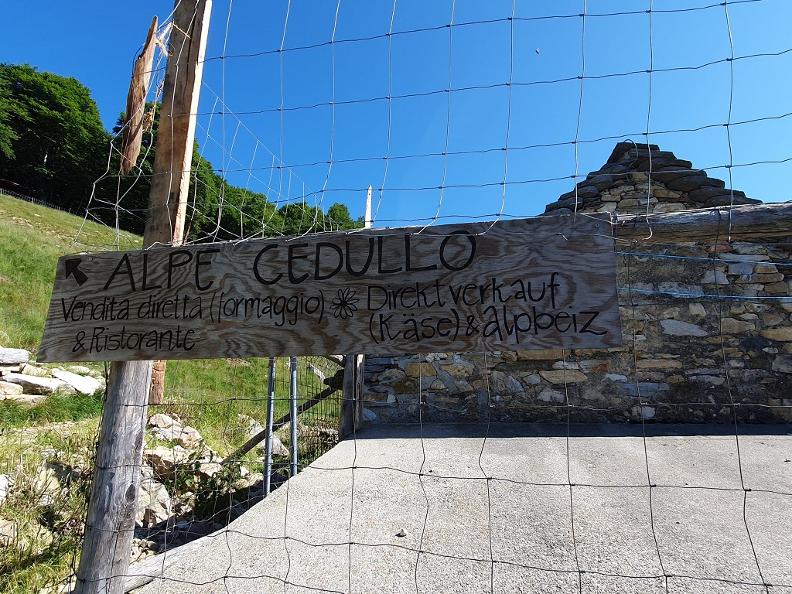 ALPE CEDULLO
Vendita diretta (formaggio) Direktverkauf
& Ristorante (Käse) & Alpbeiz